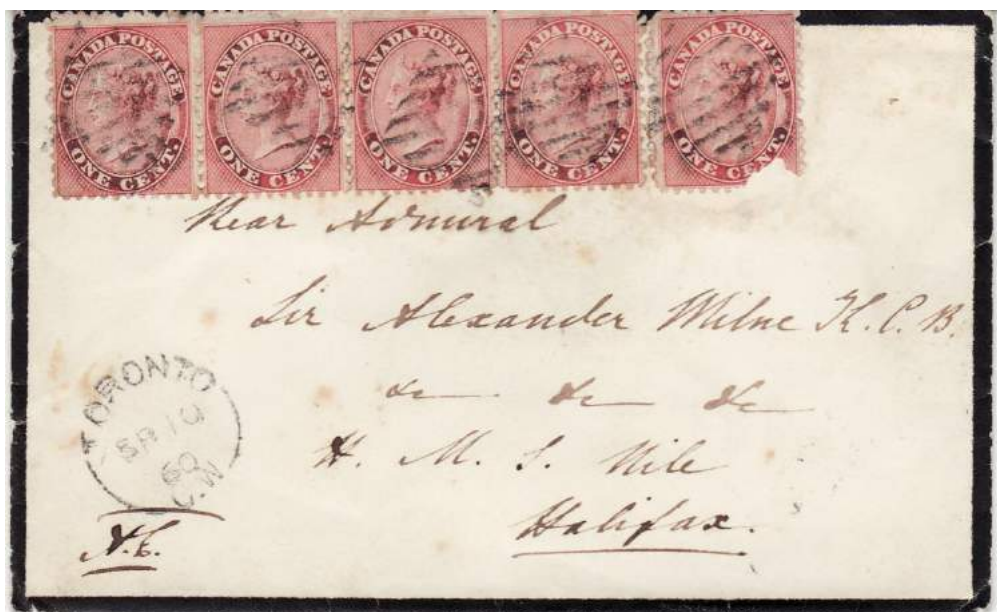 CANADA POSTAGE ONE CENT. CANADA POSTAGE ONE CENT. CANADA POSTAGE ONE CENT. CANADA POSTAGE ONE CENT. CANADA POSTAGE ONE CENT.
Rear Admiral
Sir Alexander Milne K.C.B.
&c &c &c
H. M. S. Nile
Halifax.
TORONTO
SP 13
60
C.W